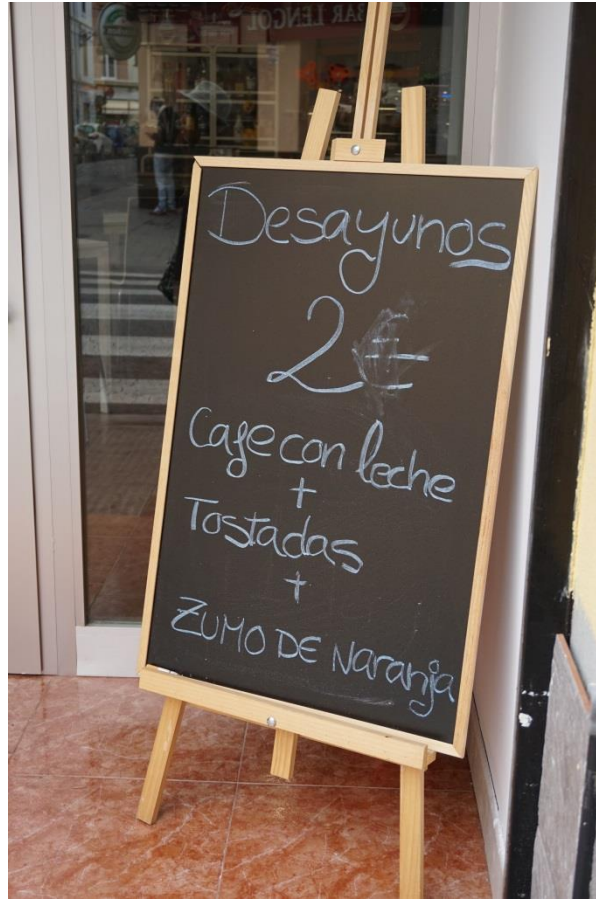 BAR LENGOL
Desayunos
2€
Cafe con leche
+
Tostadas
+
ZUMO DE Naranja